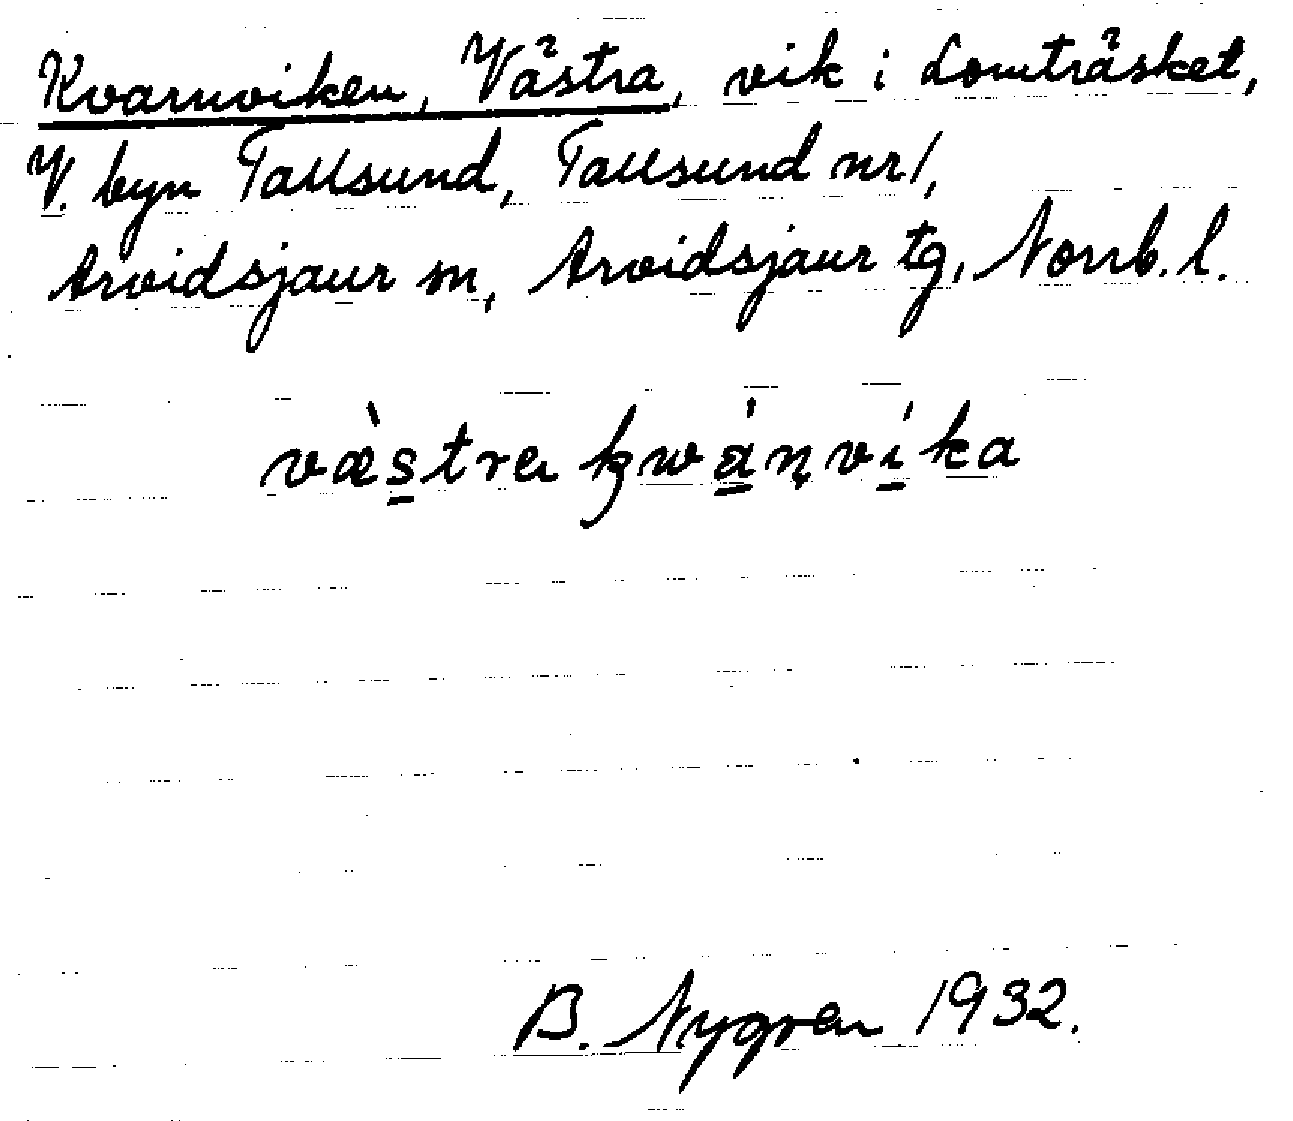 Kvarnviken, Västra, vik i Lomträsket,
V. byn Tallsund, Tallsund nr 1,
Arvidsjaur sn, Arvidsjaur tg, Norrb. l.
væ̀s̲tra kwá̲ṇví̲ka
B. Nygren 1932.